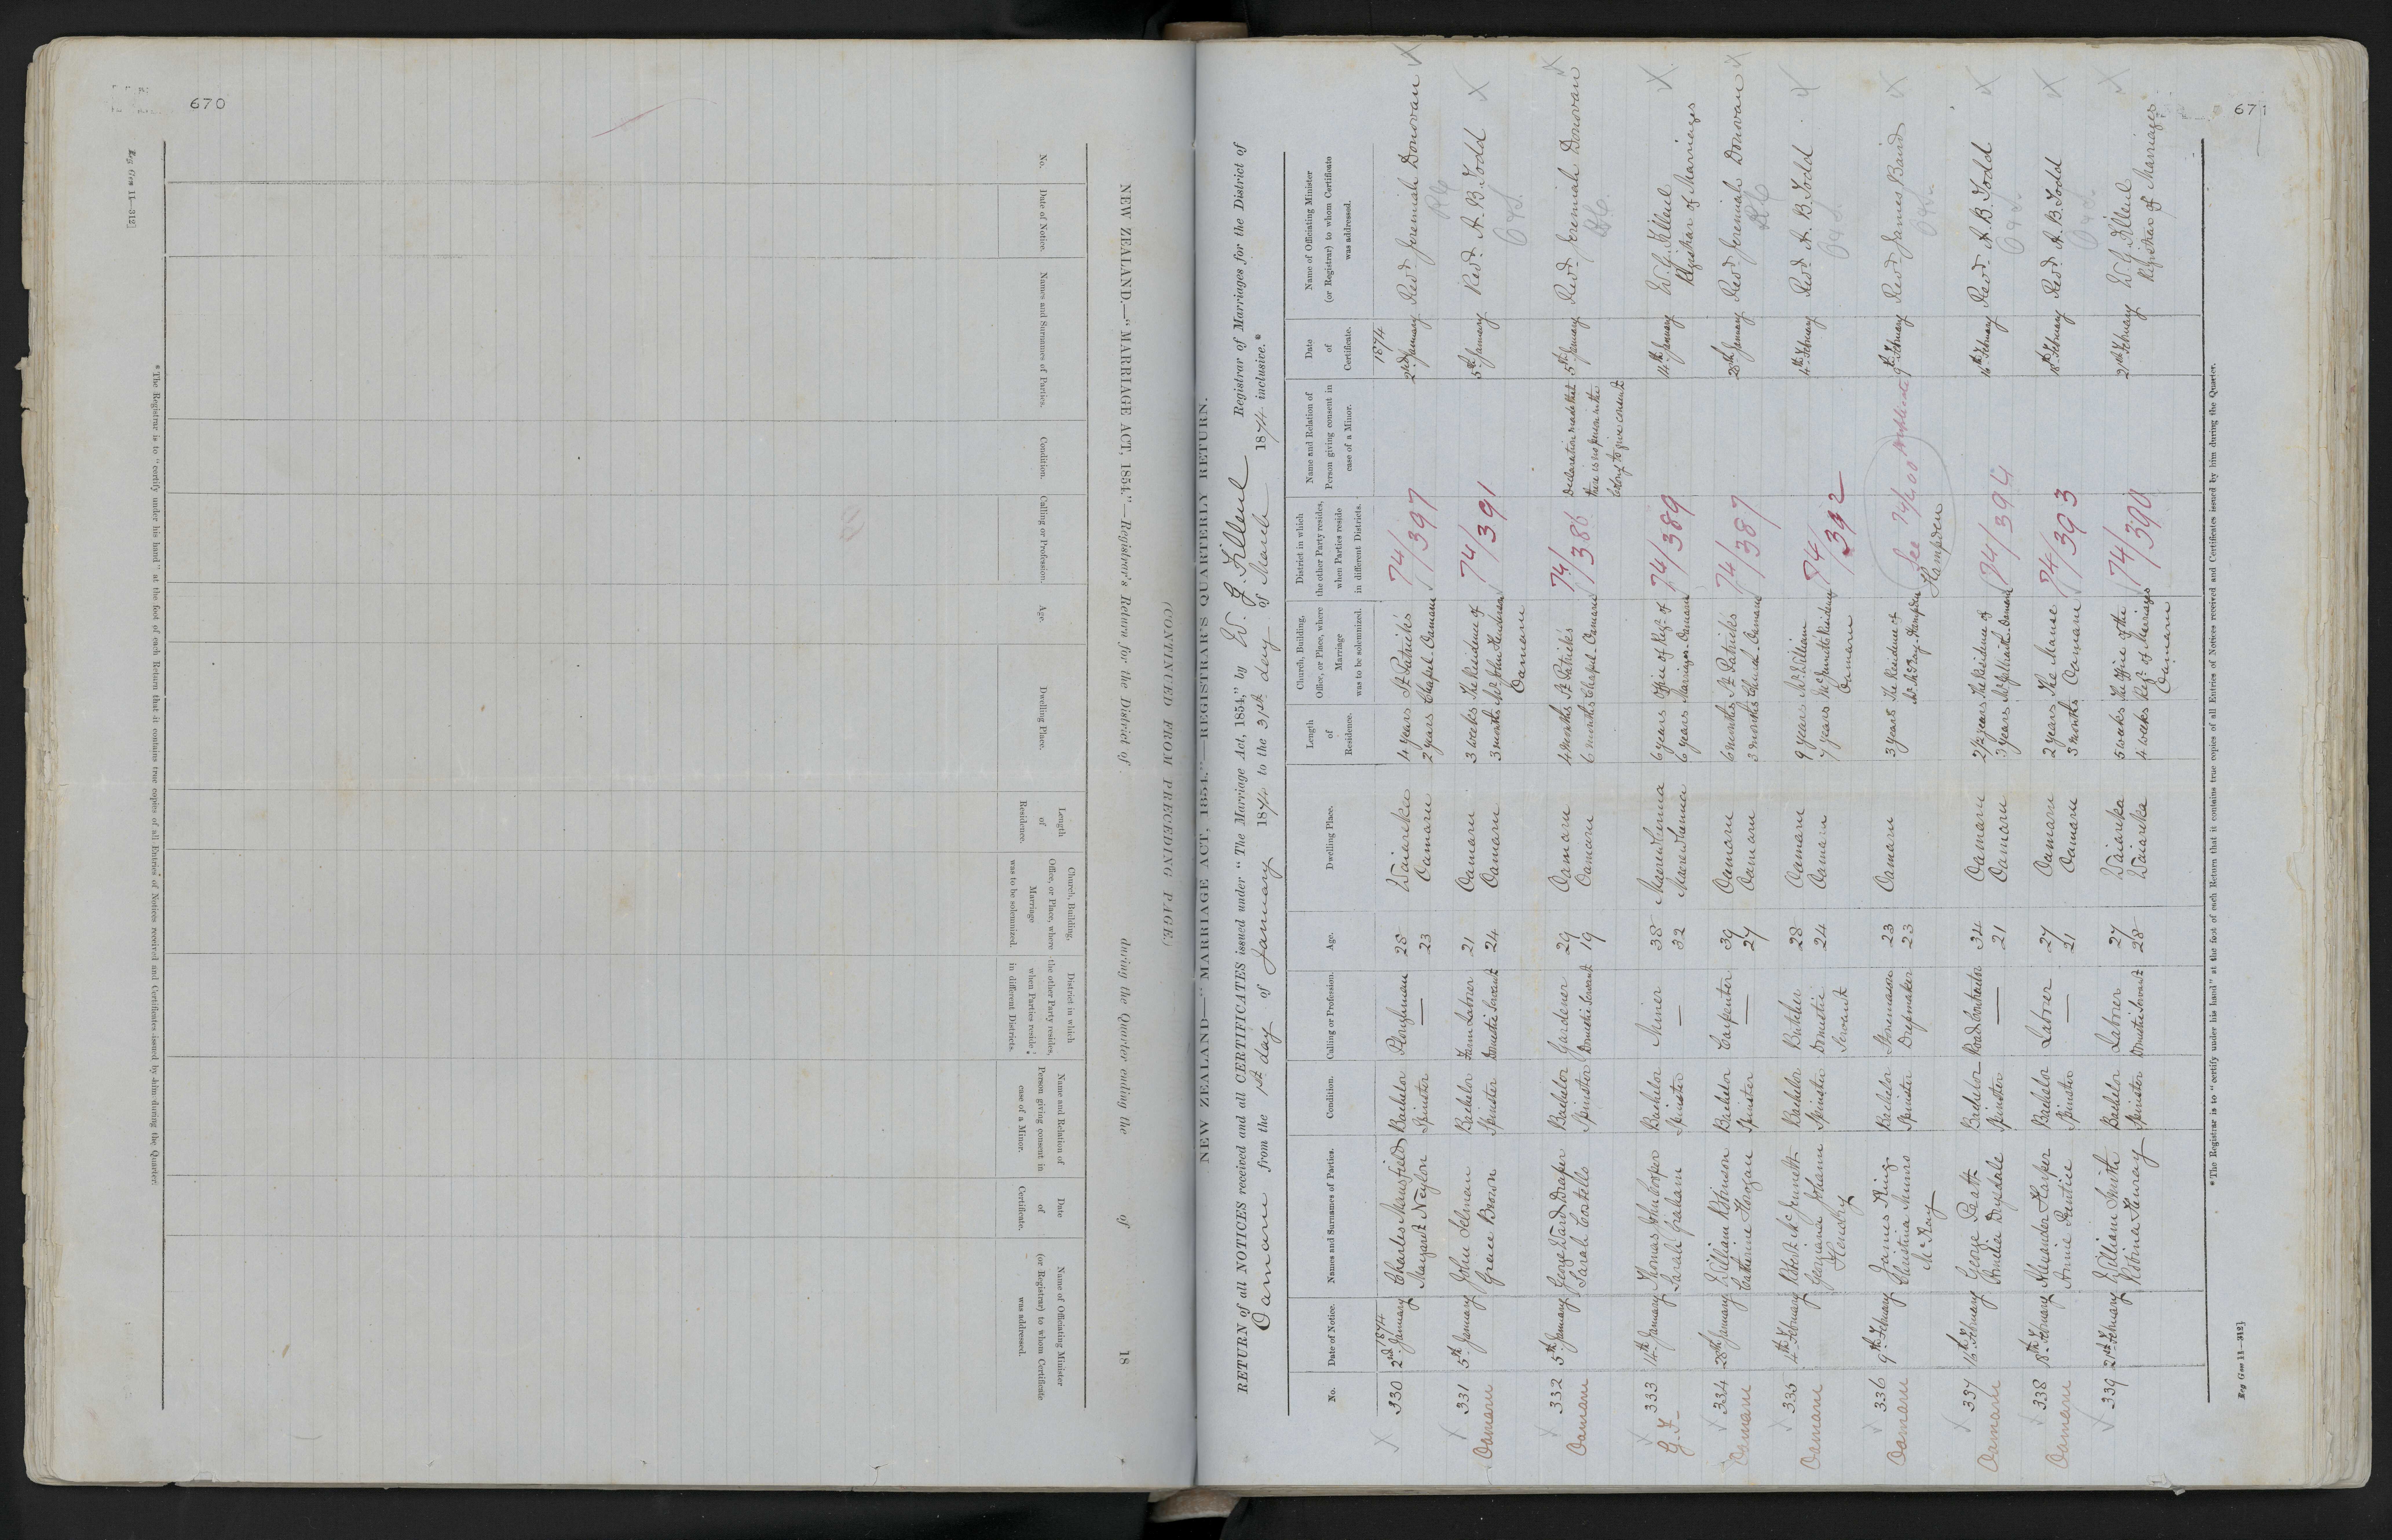 670
Reg Gen 11—312]
NEW ZEALAND.—"MARRIAGE ACT, 1854."—Registrar's Return for the District of during the Quarter ending the of 18
(CONTINUED FROM PRECEDING PAGE.)
No.
Date of Notice.
Names and Surnames of Parties.
Condition.
Calling or Profession.
Age.
Dwelling Place.
Length of Residence.
Church, Building, Office, or Place, where Marriage was to be solemnized.
District in which the other Party resides, when Parties reside in different Districts.
Name and Relation of Person giving consent in case of a Minor.
Date of Certificate.
Name of Officiating Minister (or Registrar) to whom Certificate was addressed.
* The Registrar is to "certify under his hand" at the foot of each Return that it contains true copies of all Entries of Notices received and Certificates issued by him during the Quarter.
671
NEW ZEALAND—"MARRIAGE ACT, 1854."—REGISTRAR'S QUARTERLY RETURN.
RETURN of all NOTICES received and all CERTIFICATES issued under "The Marriage Act, 1854," by W. G. Filleul Registrar of Marriages for the District of
Oamaru from the 1st day of January 1874 to the 31st day of March 1874 inclusive.*
No.
Date of Notice.
Names and Surnames of Parties.
Condition.
Calling or Profession.
Age.
Dwelling Place.
Length of Residence.
Church, Building, Office, or Place, where Marriage was to be solemnized.
District in which the other Party resides, when Parties reside in different Districts.
Name and Relation of Person giving consent in case of a Minor.
Date of Certificate.
Name of Officiating Minister (or Registrar) to whom Certificate was addressed.
1874 1874
330 2nd January Charles Mansfield Bachelor Ploughman 28 Waiareka 4 years St Patrick's 74/397 2nd January Revd Jeremiah Donovan
Margaret Neylon Spinster — 23 Oamaru 2 years Chapel - Oamaru RC
331 5th January John Selman Bachelor Farm Labrer 21 Oamaru 3 weeks The Residence of 74/391 5th January Revd A. B. Todd
Oamaru Grace Brown Spinster Domestic Servant 24 Oamaru 3 months Mr John Henderson
Oamaru
332 5th January George Ward Draper Bachelor Gardener 29 Oamaru 4 months St Patrick's 74/386 Declaration made that 5th January Revd Jeremiah Donovan
Oamaru Sarah Costello Spinster Domestic Servant 19 Oamaru 6 months Chapel - Oamaru there is no person in the RC
Colony to give consent
333 14th January Thomas Bachelor Miner 38 Maerewhenua 6 years Office of Regr of 74/389 14th January W. G. Filleul
G. F. Sarah Graham Spinster — 32 Maerewhenua 6 years Marriages - Oamaru Registrar of Marriages
334 28th January William Robinson Bachelor Carpenter 39 Oamaru 6 months St Patrick's 74/387 28th January Revd Jeremiah Donovan
Oamaru Catherine Spinster — 27 Oamaru 3 months Church - Oamaru RC
335 4th February Robert McJennett Bachelor Butcher 28 Oamaru 9 years Mr William 74/392 4th February Revd A. B. Todd
Oamaru Georgiana Johann Spinster Domestic 24 Oamaru 7 years McJennett's Residence
Hendry Servant Oamaru
336 9th February James King Bachelor Stonemason 23 Oamaru 3 years The Residence of See 74/400 9th February Revd James Baird
Oamaru Christina Munro Spinster Dressmaker 23 Mr McKay - Hampden Hampden
McKay
337 16th February George Patt Bachelor Road Contractor 34 Oamaru 2½ years The Residence of 74/394 16th February Revd A. B. Todd
Oamaru Amelia Drysdale Spinster — 21 Oamaru 3 years Mr Galbraith - Oamaru
338 18th February Alexander Harper Bachelor Labrer 27 Oamaru 2 years The Manse 74/393 18th February Revd A. B. Todd
Oamaru Annie Spinster — 21 Oamaru 3 months Oamaru
339 21st February William Smith Bachelor Labrer 27 Waiareka 5 weeks The Office of the 74/390 21st February W. G. Filleul
Robina Spinster Domestic Servant 28 Waiareka 4 weeks Regr of Marriages Registrar of Marriages
Oamaru
* The Registrar is to "certify under his hand" at the foot of each Return that it contains true copies of all Entries of Notices received and Certificates issued by him during the Quarter.
Reg Gen 11—312]